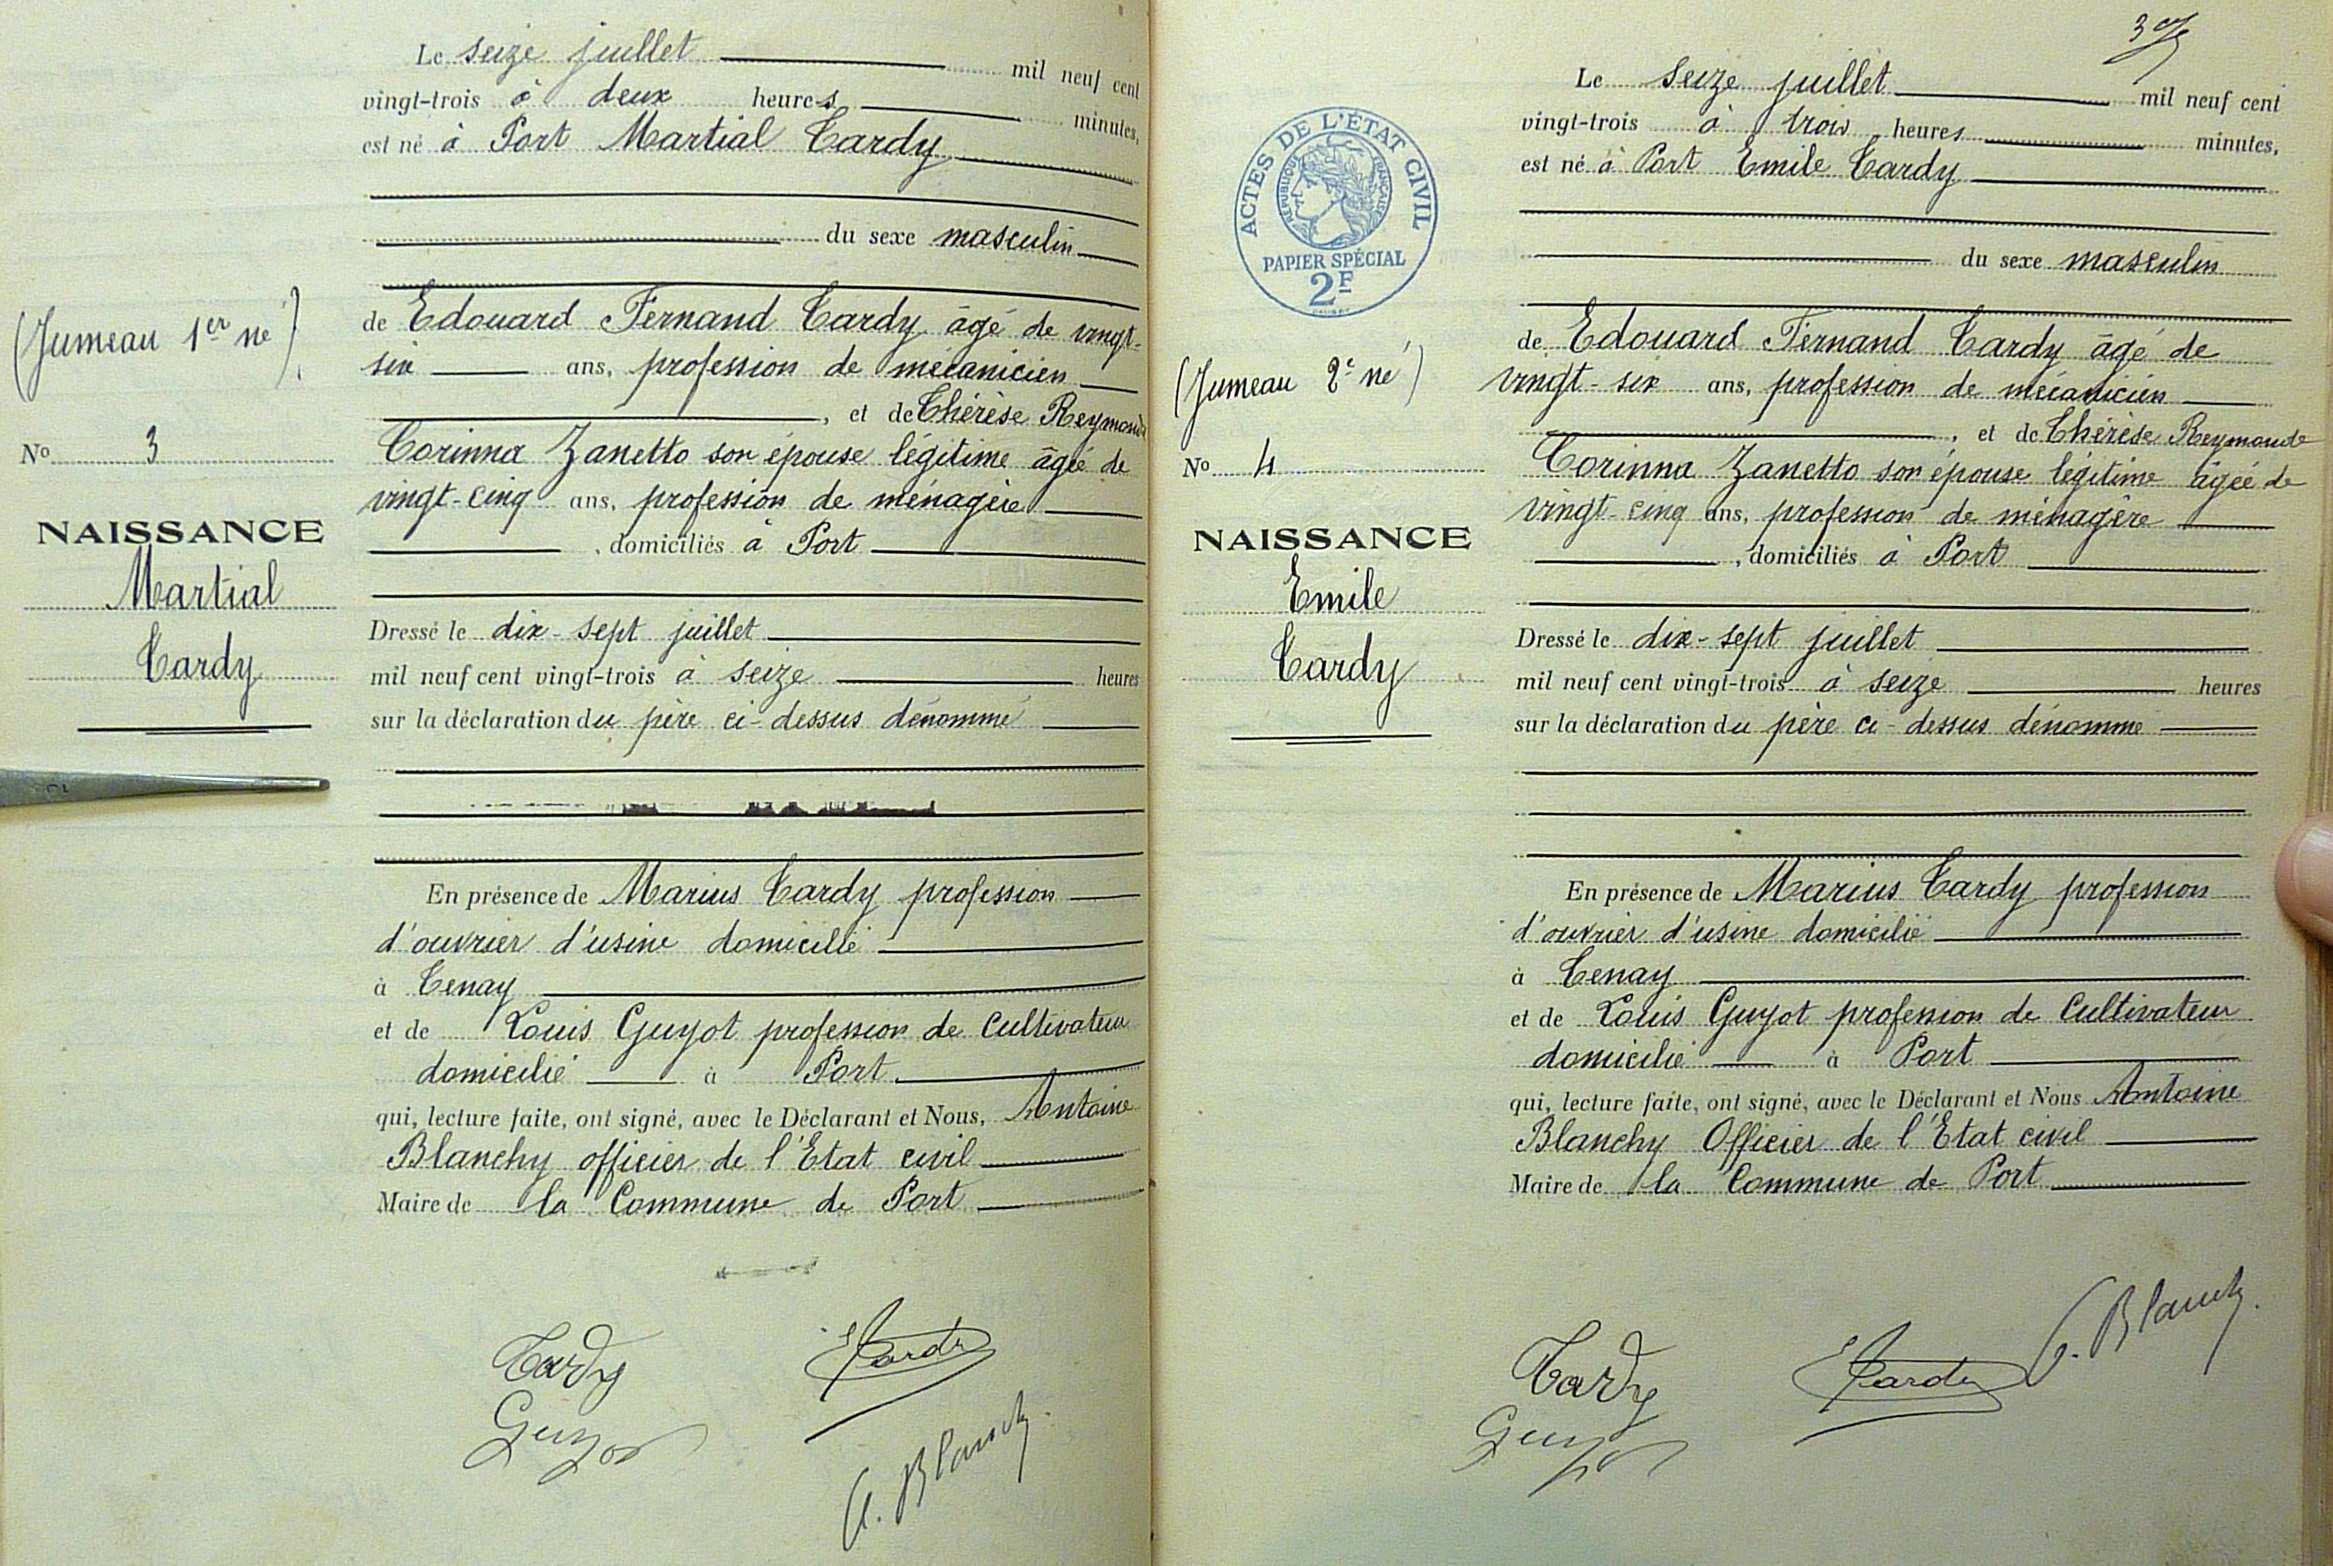 Le seize juillet mil neuf cent
vingt-trois à deux heures minutes,
est né à Port Martial Tardy
du sexe masculin
(Jumeau 1er né)
de Edouard Fernand Tardy âgé de vingt-
six ans, profession de mécanicien
, et de Thérèse Reymonde
No 3
Corinna Zanetto son épouse légitime âgée de
vingt-cinq ans, profession de ménagère
, domiciliés à Port
NAISSANCE
Martial
Tardy
Dressé le dix-sept juillet
mil neuf cent vingt-trois à seize heures
sur la déclaration du père ci-dessus dénommé
En présence de Marius Tardy profession
d'ouvrier d'usine domicilié
à Tenay
et de Louis Guyot profession de Cultivateur
domicilié à Port
qui, lecture faite, ont signé, avec le Déclarant et Nous, Antoine
Blanchy officier de l'Etat civil
Maire de la Commune de Port
Tardy
E Tardy
Guyot
A. Blanchy
Le seize juillet mil neuf cent
vingt-trois à trois heures minutes,
est né à Port Emile Tardy
ACTES DE L'ÉTAT CIVIL
RÉPUBLIQUE FRANÇAISE
PAPIER SPÉCIAL
2F
du sexe masculin
de Edouard Fernand Tardy âgé de
(Jumeau 2e né)
vingt-six ans, profession de mécanicien
, et de Thérèse Reymonde
No 4
Corinna Zanetto son épouse légitime âgée de
vingt-cinq ans, profession de ménagère
, domiciliés à Port
NAISSANCE
Emile
Tardy
Dressé le dix-sept juillet
mil neuf cent vingt-trois à seize heures
sur la déclaration du père ci-dessus dénommé
En présence de Marius Tardy profession
d'ouvrier d'usine domicilié
à Tenay
et de Louis Guyot profession de Cultivateur
domicilié à Port
qui, lecture faite, ont signé, avec le Déclarant et Nous Antoine
Blanchy Officier de l'Etat civil
Maire de la Commune de Port
Tardy
E Tardy
A. Blanchy
Guyot